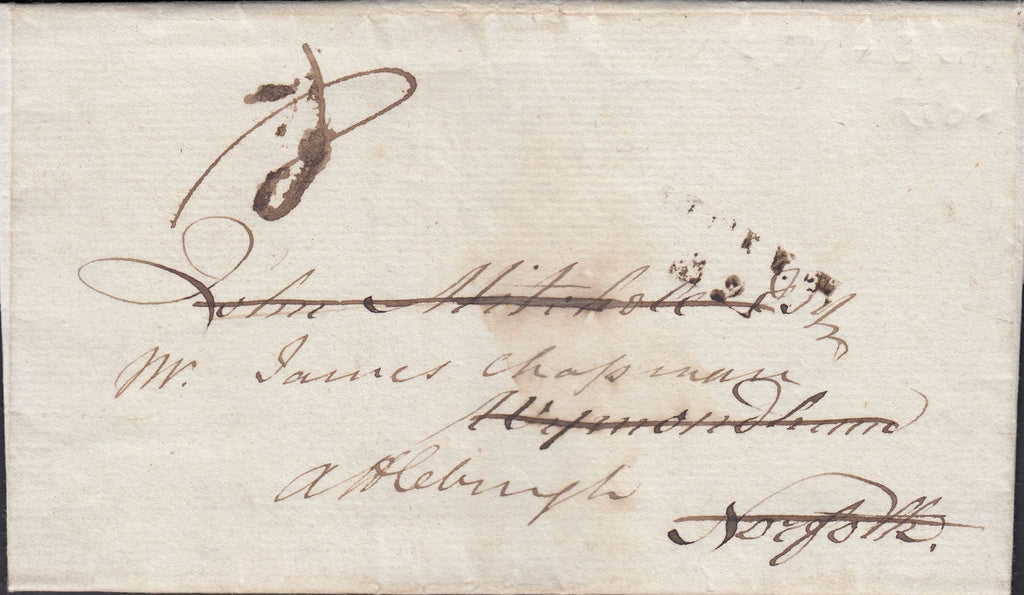 8
John Mitchell Esqr
Mr. James Chapman
Wymondham
Attleburgh
Norfolk.